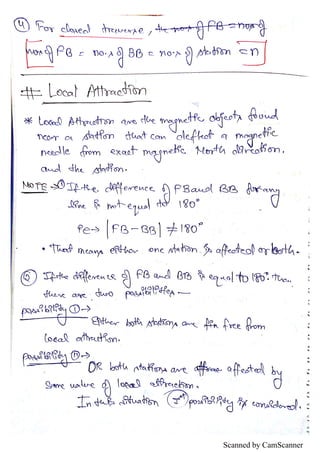 ④ For closed traverse, the no.s of FB = no.s of
no.s of FB = no.s of BB = no.s of station = n
# Local Attraction
* Local Attraction are the magnetic objects found
near a station that can deflect a magnetic
needle from exact magnetic North direction.
and the station.
NOTE → ① If the difference of FB and BB for any
line is not equal to 180°
ie → |FB - BB| ≠ 180°
• That means either one station is affected or both.
② If the difference of FB and BB is equal to 180°. Then
there are two possibilities —
possibility ① →
Either both stations are free from
local attraction.
possibility ② →
OR both stations are affected by
same value of local attraction.
In this situation Iˢᵗ possibility is considered.
Scanned by CamScanner